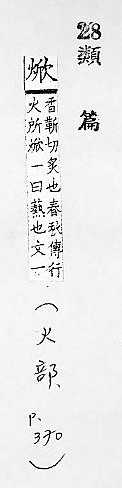 28 類篇
焮
香靳切炙也春秋傳行
火所焮一曰爇也文一
(火部、
P.
370)